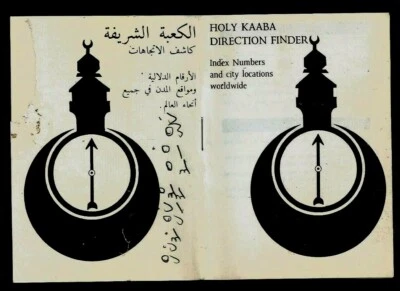 الكعبة الشريفة
كاشف الاتجاهات
الأرقام الدلالية
ومواقع المدن في جميع
أنحاء العالم.
HOLY KAABA
DIRECTION FINDER
Index Numbers
and city locations
worldwide